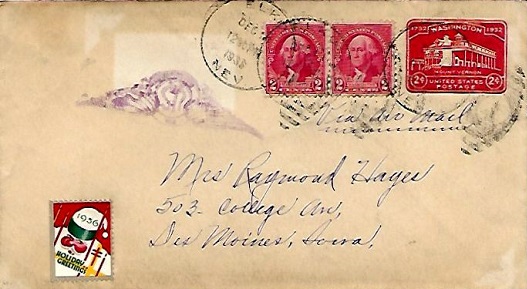 1732 WASHINGTON 1932
MOUNT VERNON
2¢ UNITED STATES 2¢
POSTAGE
DEC
1936
NEV
2 2
2 2
Via Air Mail
Mrs Raymond Hayes
503 - College Av,
Des Moines, Iowa,
1936
HOLIDAY
GREETINGS